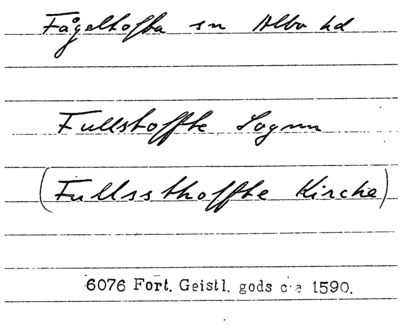 Fågeltofta sn Albo hd
Fullstoffte Sognn
(Fullssthoffte Kirche)
6076 Fort. Geistl. gods c:a 1590.